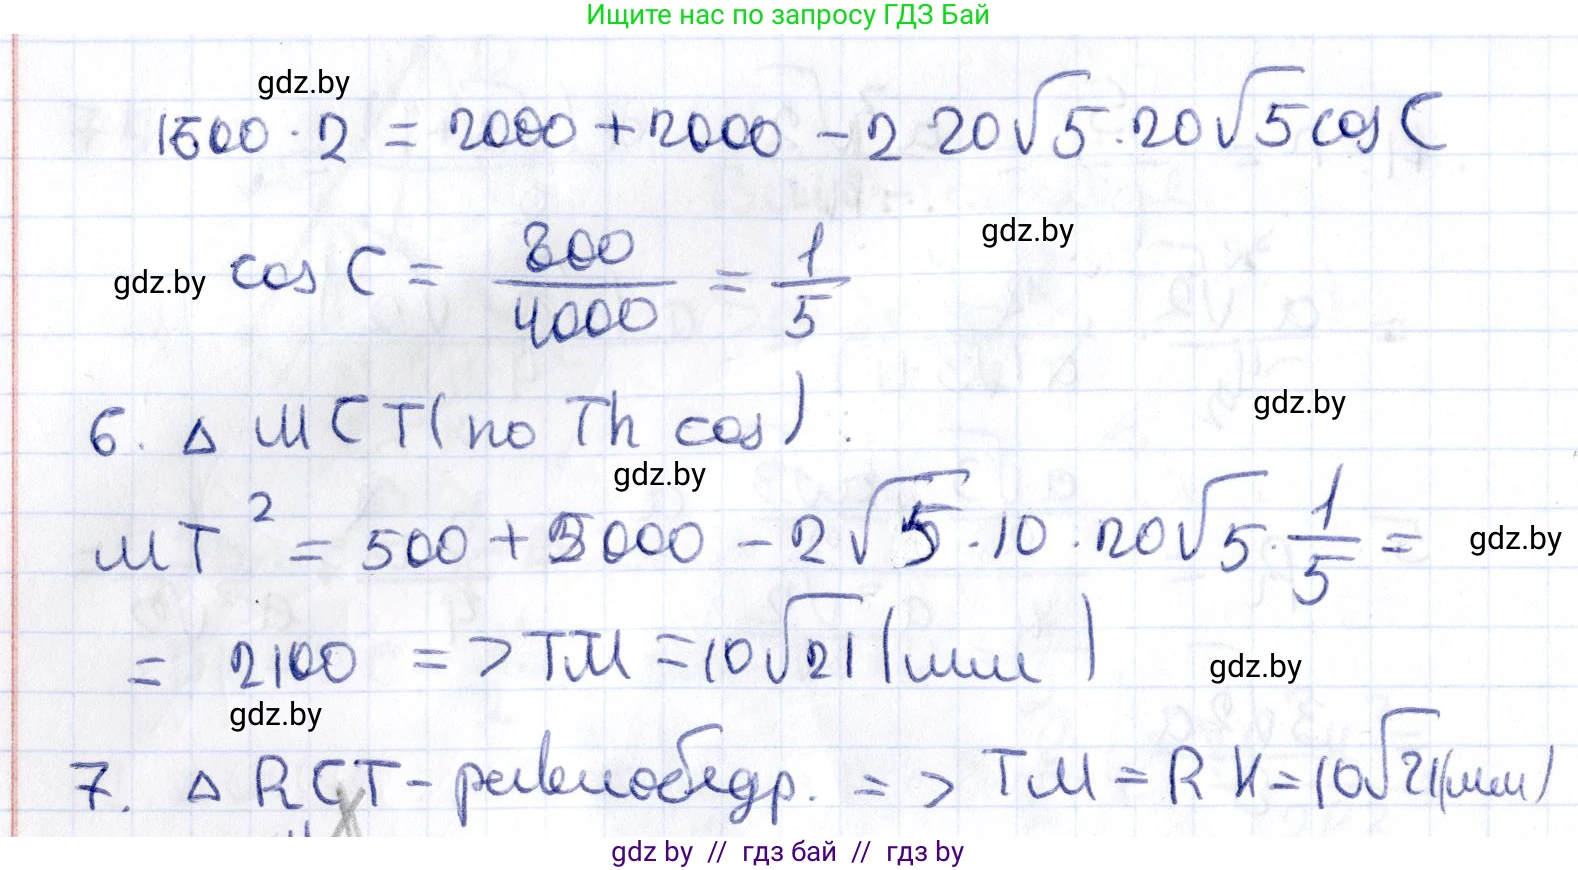 Ищите нас по запросу ГДЗ Бай
gdz.by
1600 · 2 = 2000 + 2000 - 2 20√5 · 20√5 cos C
gdz.by
gdz.by cos C = 800/4000 = 1/5
6. △ МСТ (по Th cos).
gdz.by
gdz.by
МТ² = 500 + 2000 - 2√5 · 10 · 20√5 · 1/5 =
gdz.by
= 2100 => ТМ = 10√21 (мм)
gdz.by
gdz.by
7. △ RCT - равнобедр. => ТМ = RK = 10√21 (мм)
gdz by // гдз бай // гдз by